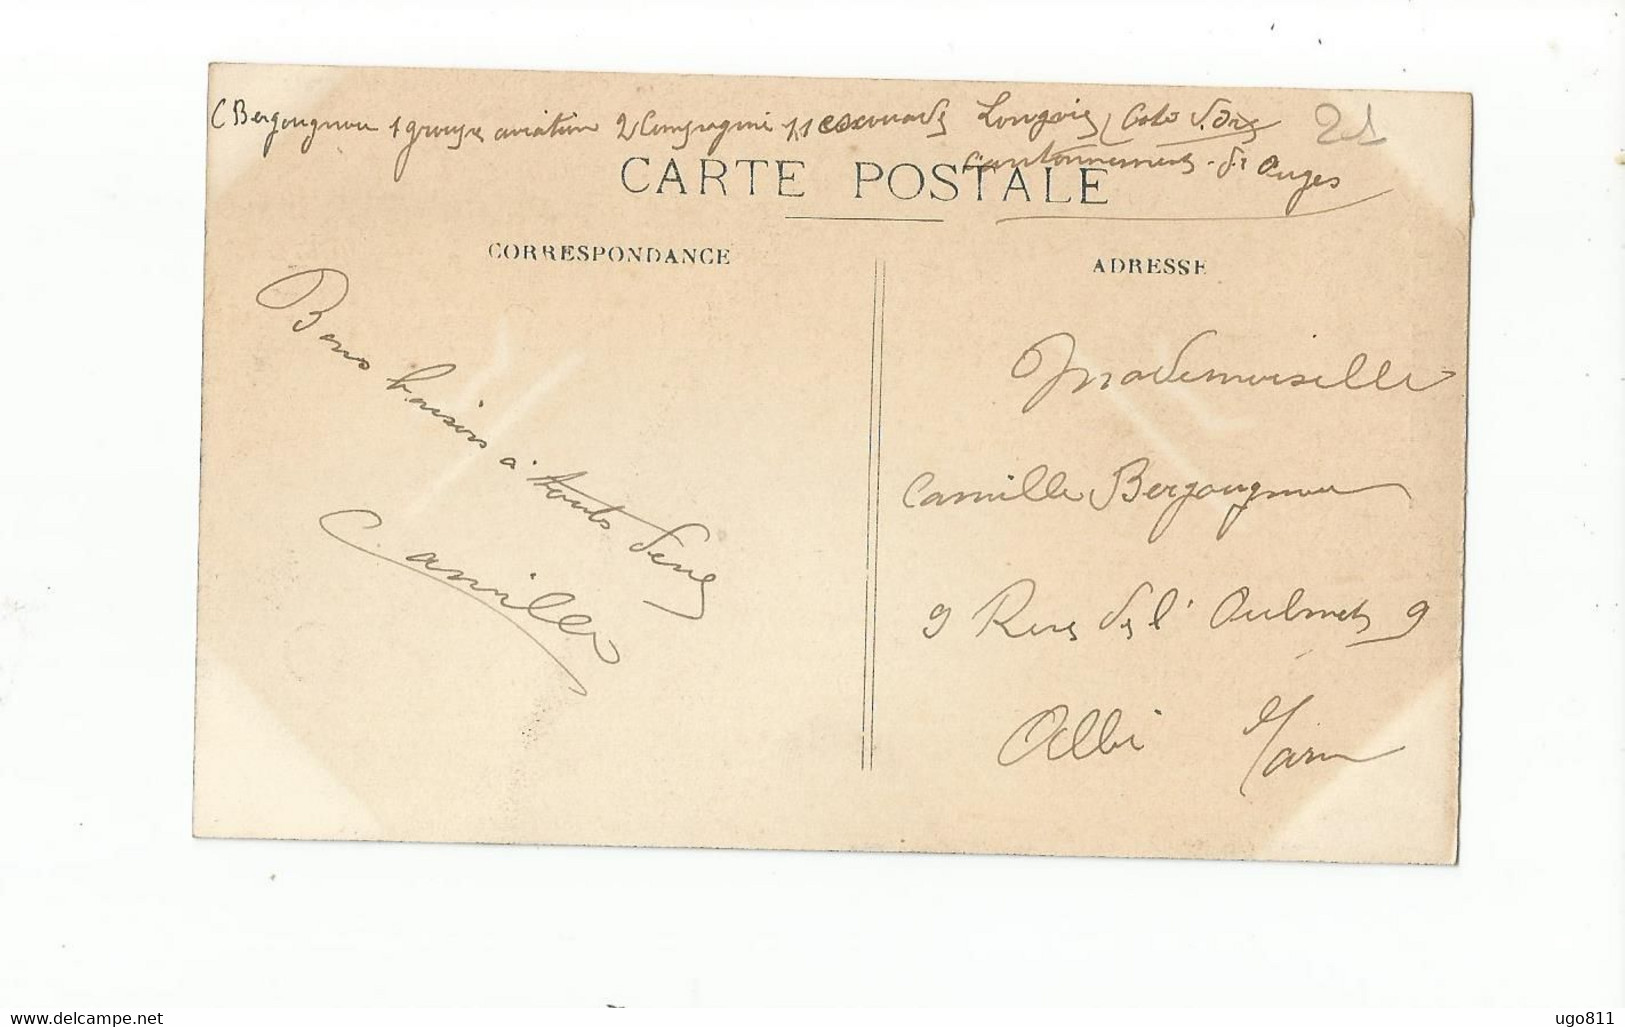 C Bergougnou 1 groupe aviation 2 Compagnie 11 escouade Longvic Cote d'or 21
Cantonnement d'Ouges
CARTE POSTALE
CORRESPONDANCE
ADRESSE
Bons baisers à touts deux
Camille
Mademoiselle
Camille Bergougnou
9 Rue de l' Oulmet 9
Albi Tarn
www.delcampe.net
ugo811